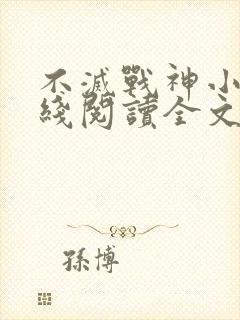 不滅戰神小
綫閱讀全文
孫博